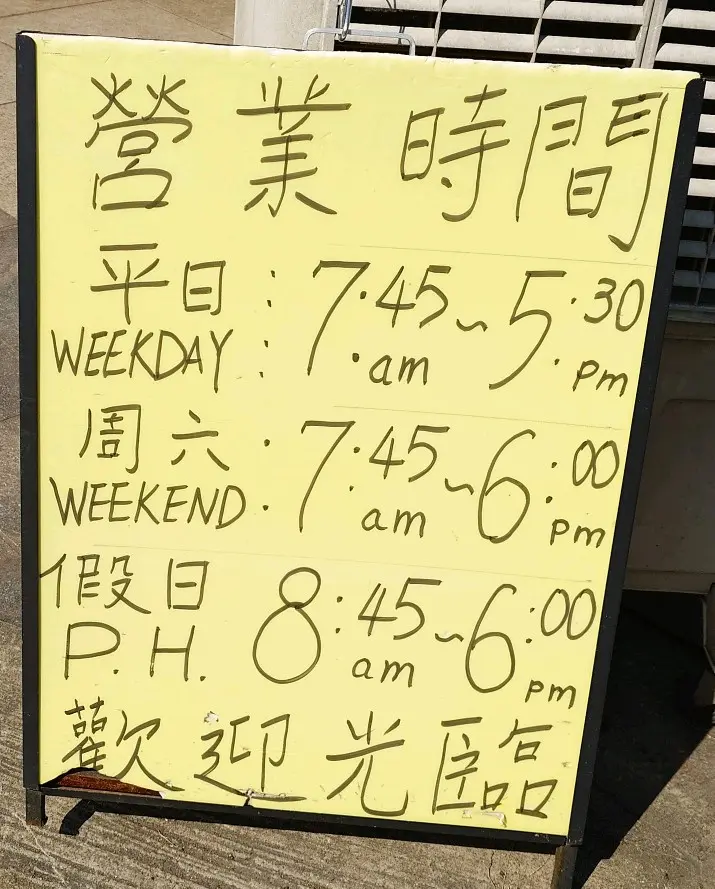 營業時間
平日：7:45am~5:30pm
WEEKDAY:
周六：7:45am~6:00pm
WEEKEND:
假日 8:45am~6:00pm
P.H.
歡迎光臨